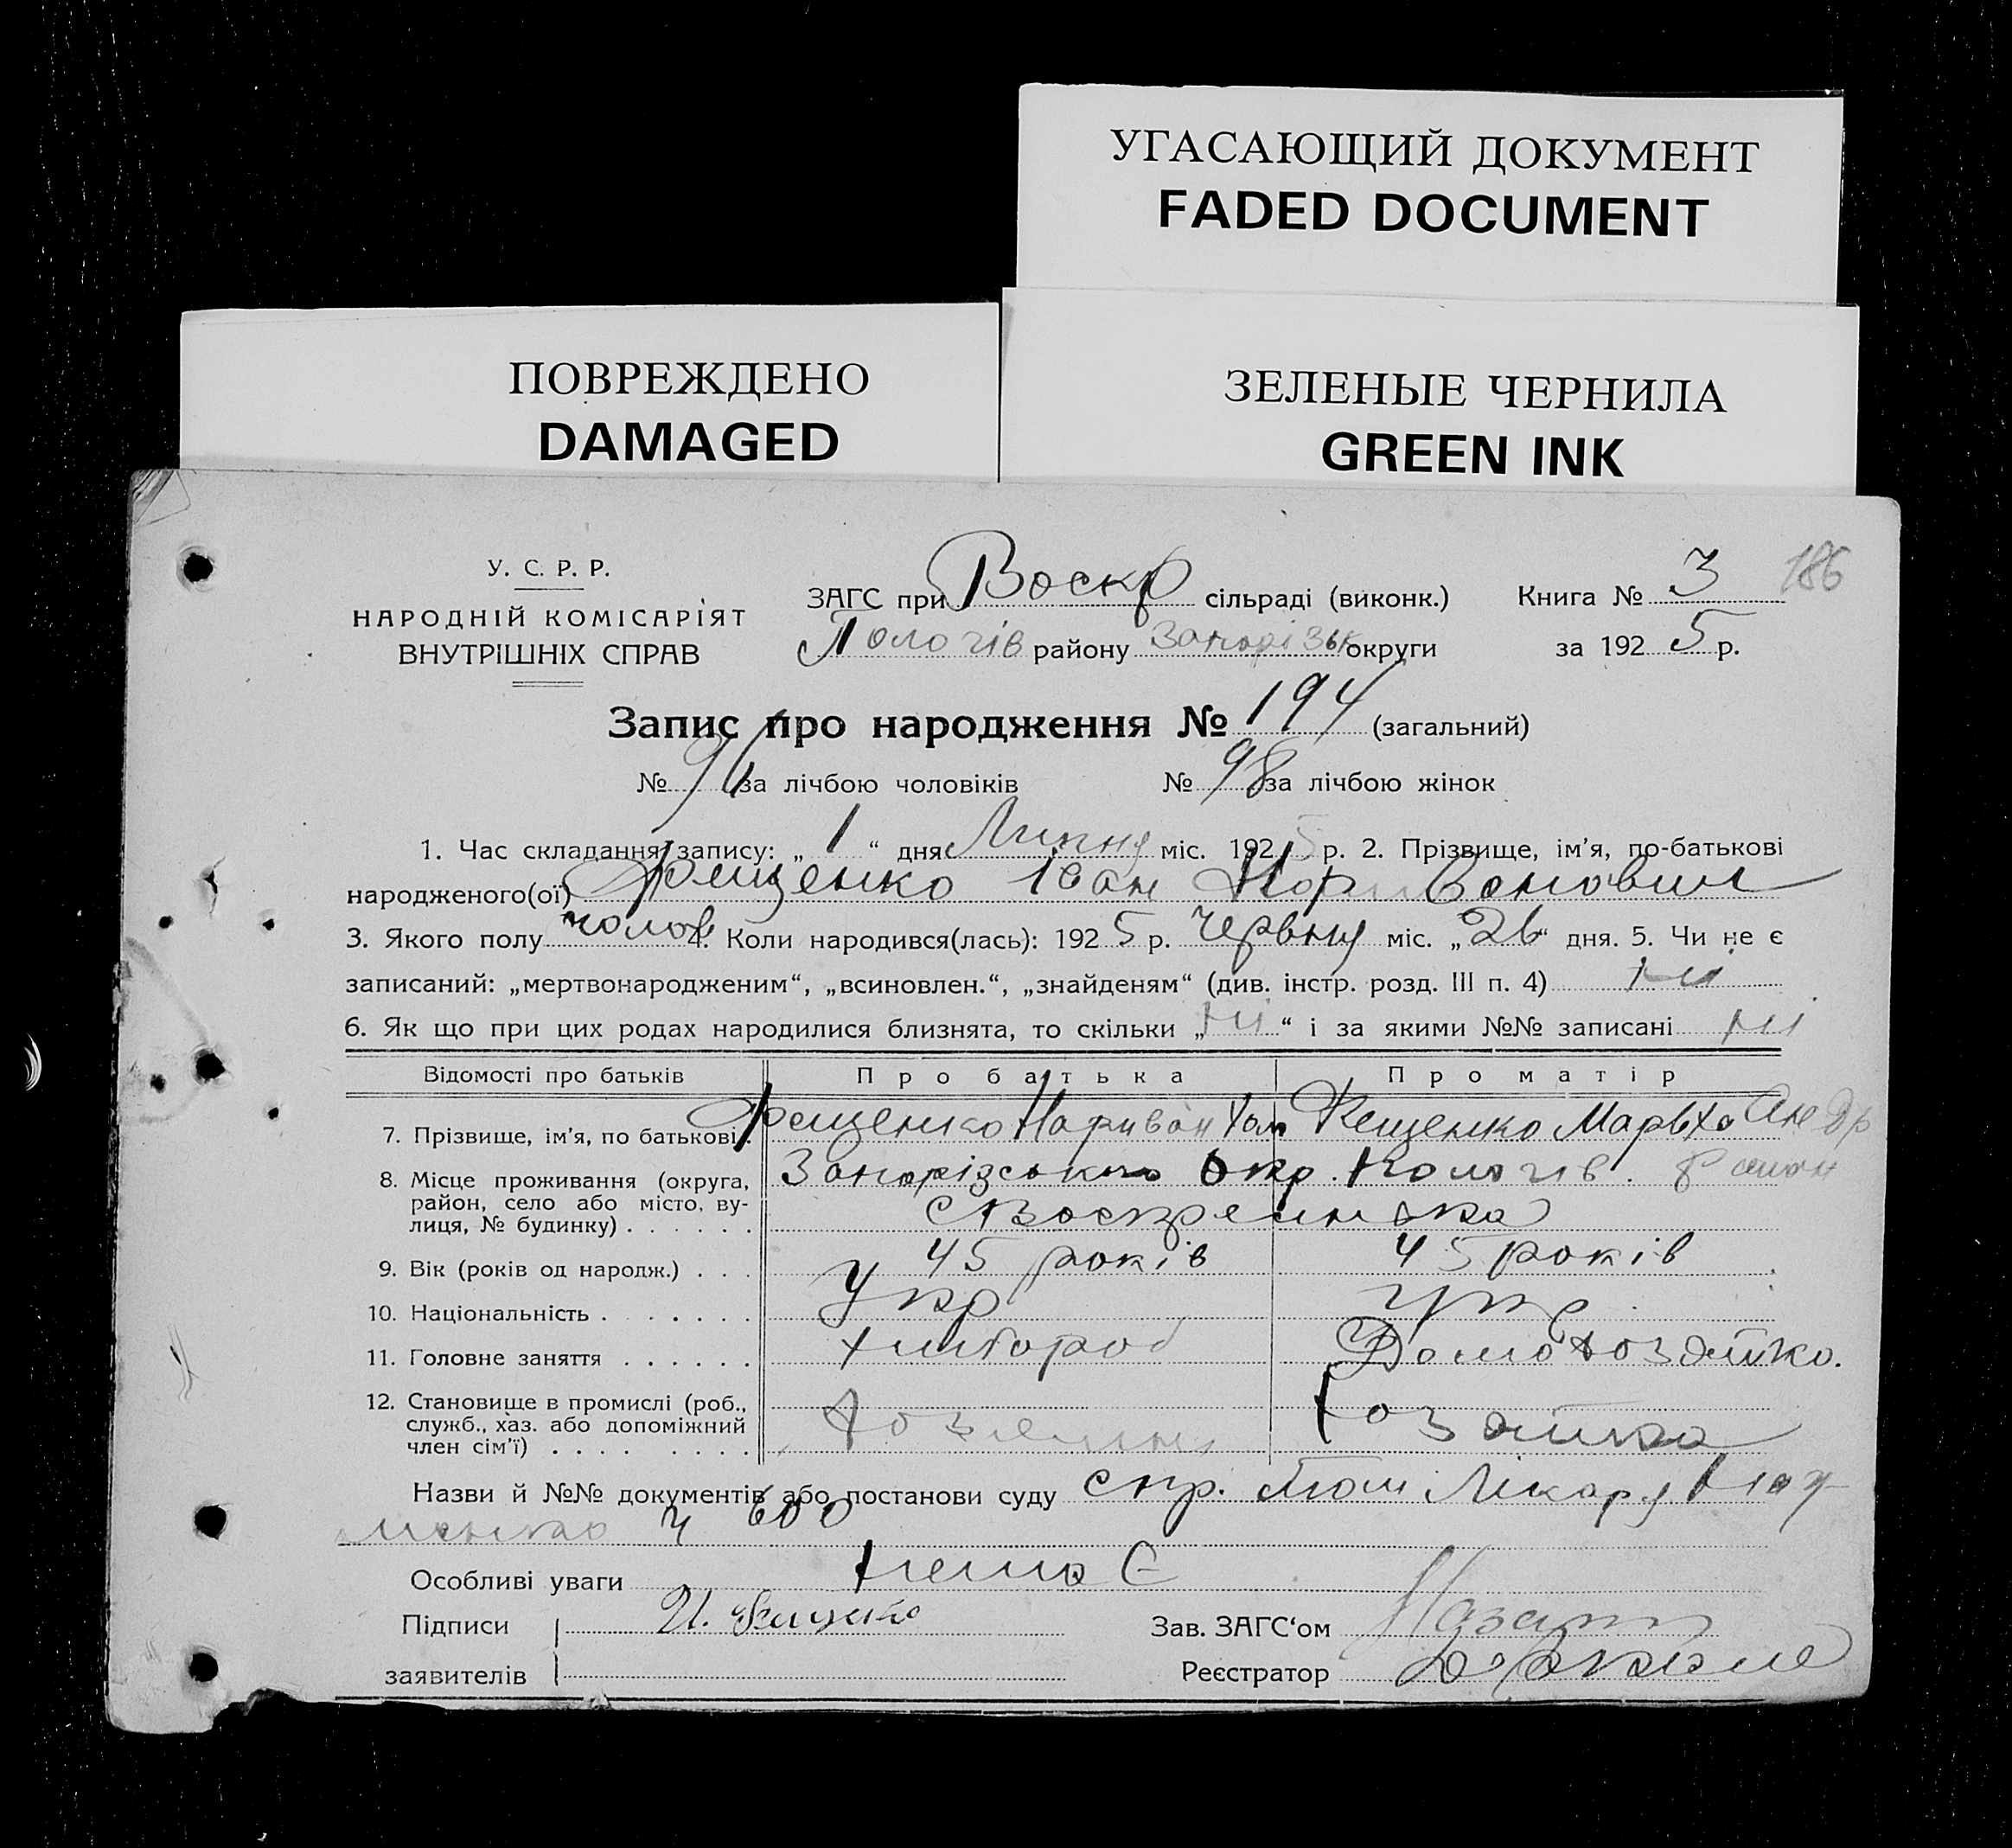 УГАСАЮЩИЙ ДОКУМЕНТ
FADED DOCUMENT
ПОВРЕЖДЕНО
DAMAGED
ЗЕЛЕНЫЕ ЧЕРНИЛА
GREEN INK
186
У. С. Р. Р.
НАРОДНІЙ КОМІСАРІЯТ
ВНУТРІШНІХ СПРАВ
ЗАГС при Воскр сільраді (виконк.) Книга № 3
Пологів району Запорізьк округи за 1925 р.
Запис про народження № 194 (загальний)
№ 96 за лічбою чоловіків № 98 за лічбою жінок
1. Час складання запису: „ 1 “ дня Липня міс. 1925 р. 2. Прізвище, ім’я, по-батькові
народженого(ої) Фещенко Іван
3. Якого полу чолов 4. Коли народився(лась): 1925 р. Червня міс. „26“ дня. 5. Чи не є
записаний: „мертвонародженим“, „всиновлен.“, „знайденям“ (див. інстр. розд. III п. 4) ні
6. Як що при цих родах народилися близнята, то скільки „ні“ і за якими №№ записані ні
Відомості про батьків Про батька Про матір
7. Прізвище, ім’я, по батькові. Фещенко Фещенко Марьха Андр
8. Місце проживання (округа, район, село або місто, вулиця, № будинку) Запорізського Окр. Пологів. район
с Воскресинька
9. Вік (років од народж.) 45 років 45 років
10. Національність Укр Укр
11. Головне заняття хлібороб Домохозяйка.
12. Становище в промислі (роб., служб., хаз. або допоміжний член сім’ї) хозяїн хозяйка
Назви й №№ документів або постанови суду спр. Лікаря
ч 600
Особливі уваги немає
Підписи И. Фещенко Зав. ЗАГС‘ом
заявителів Реєстратор